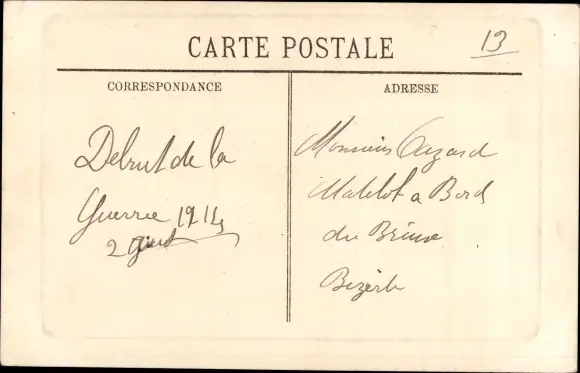 CARTE POSTALE
13
CORRESPONDANCE
Debut de la
Guerre 1914
2 Aout
ADRESSE
Monsieur
Matelot a Bord
du
Bizerte